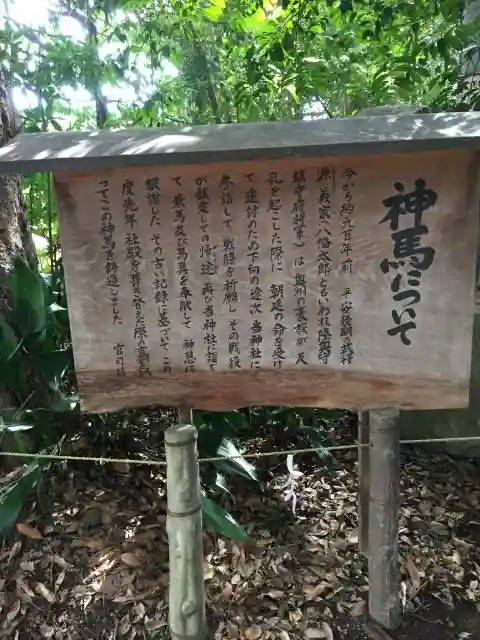 神馬について
今から約九百年前 平安後期の武将
源義家(八幡太郎と言われ陸奥守
鎮守府将軍)は奥州の豪族が反
乱を起こした際に 朝廷の命を受け
て追討のため下向の途次 当神社に
参詣して 戦勝を祈願し その戦役
が鎮定しての帰途 再び当神社に詣で
て 乗馬及び馬具を奉献して 神恩に
報謝した その古い記録に基づいて この
度先年 社殿を
って この神馬を鋳造しました
宮司